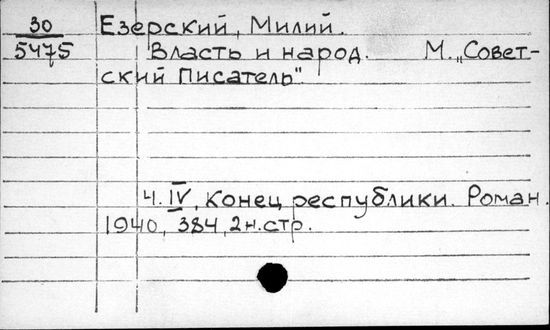 30 Езерский, Милий.
5475 Власть и народ. М. „Совет-
ский Писатель".
ч. IV. Конец республики. Роман.
1940, 384, 2н.стр.